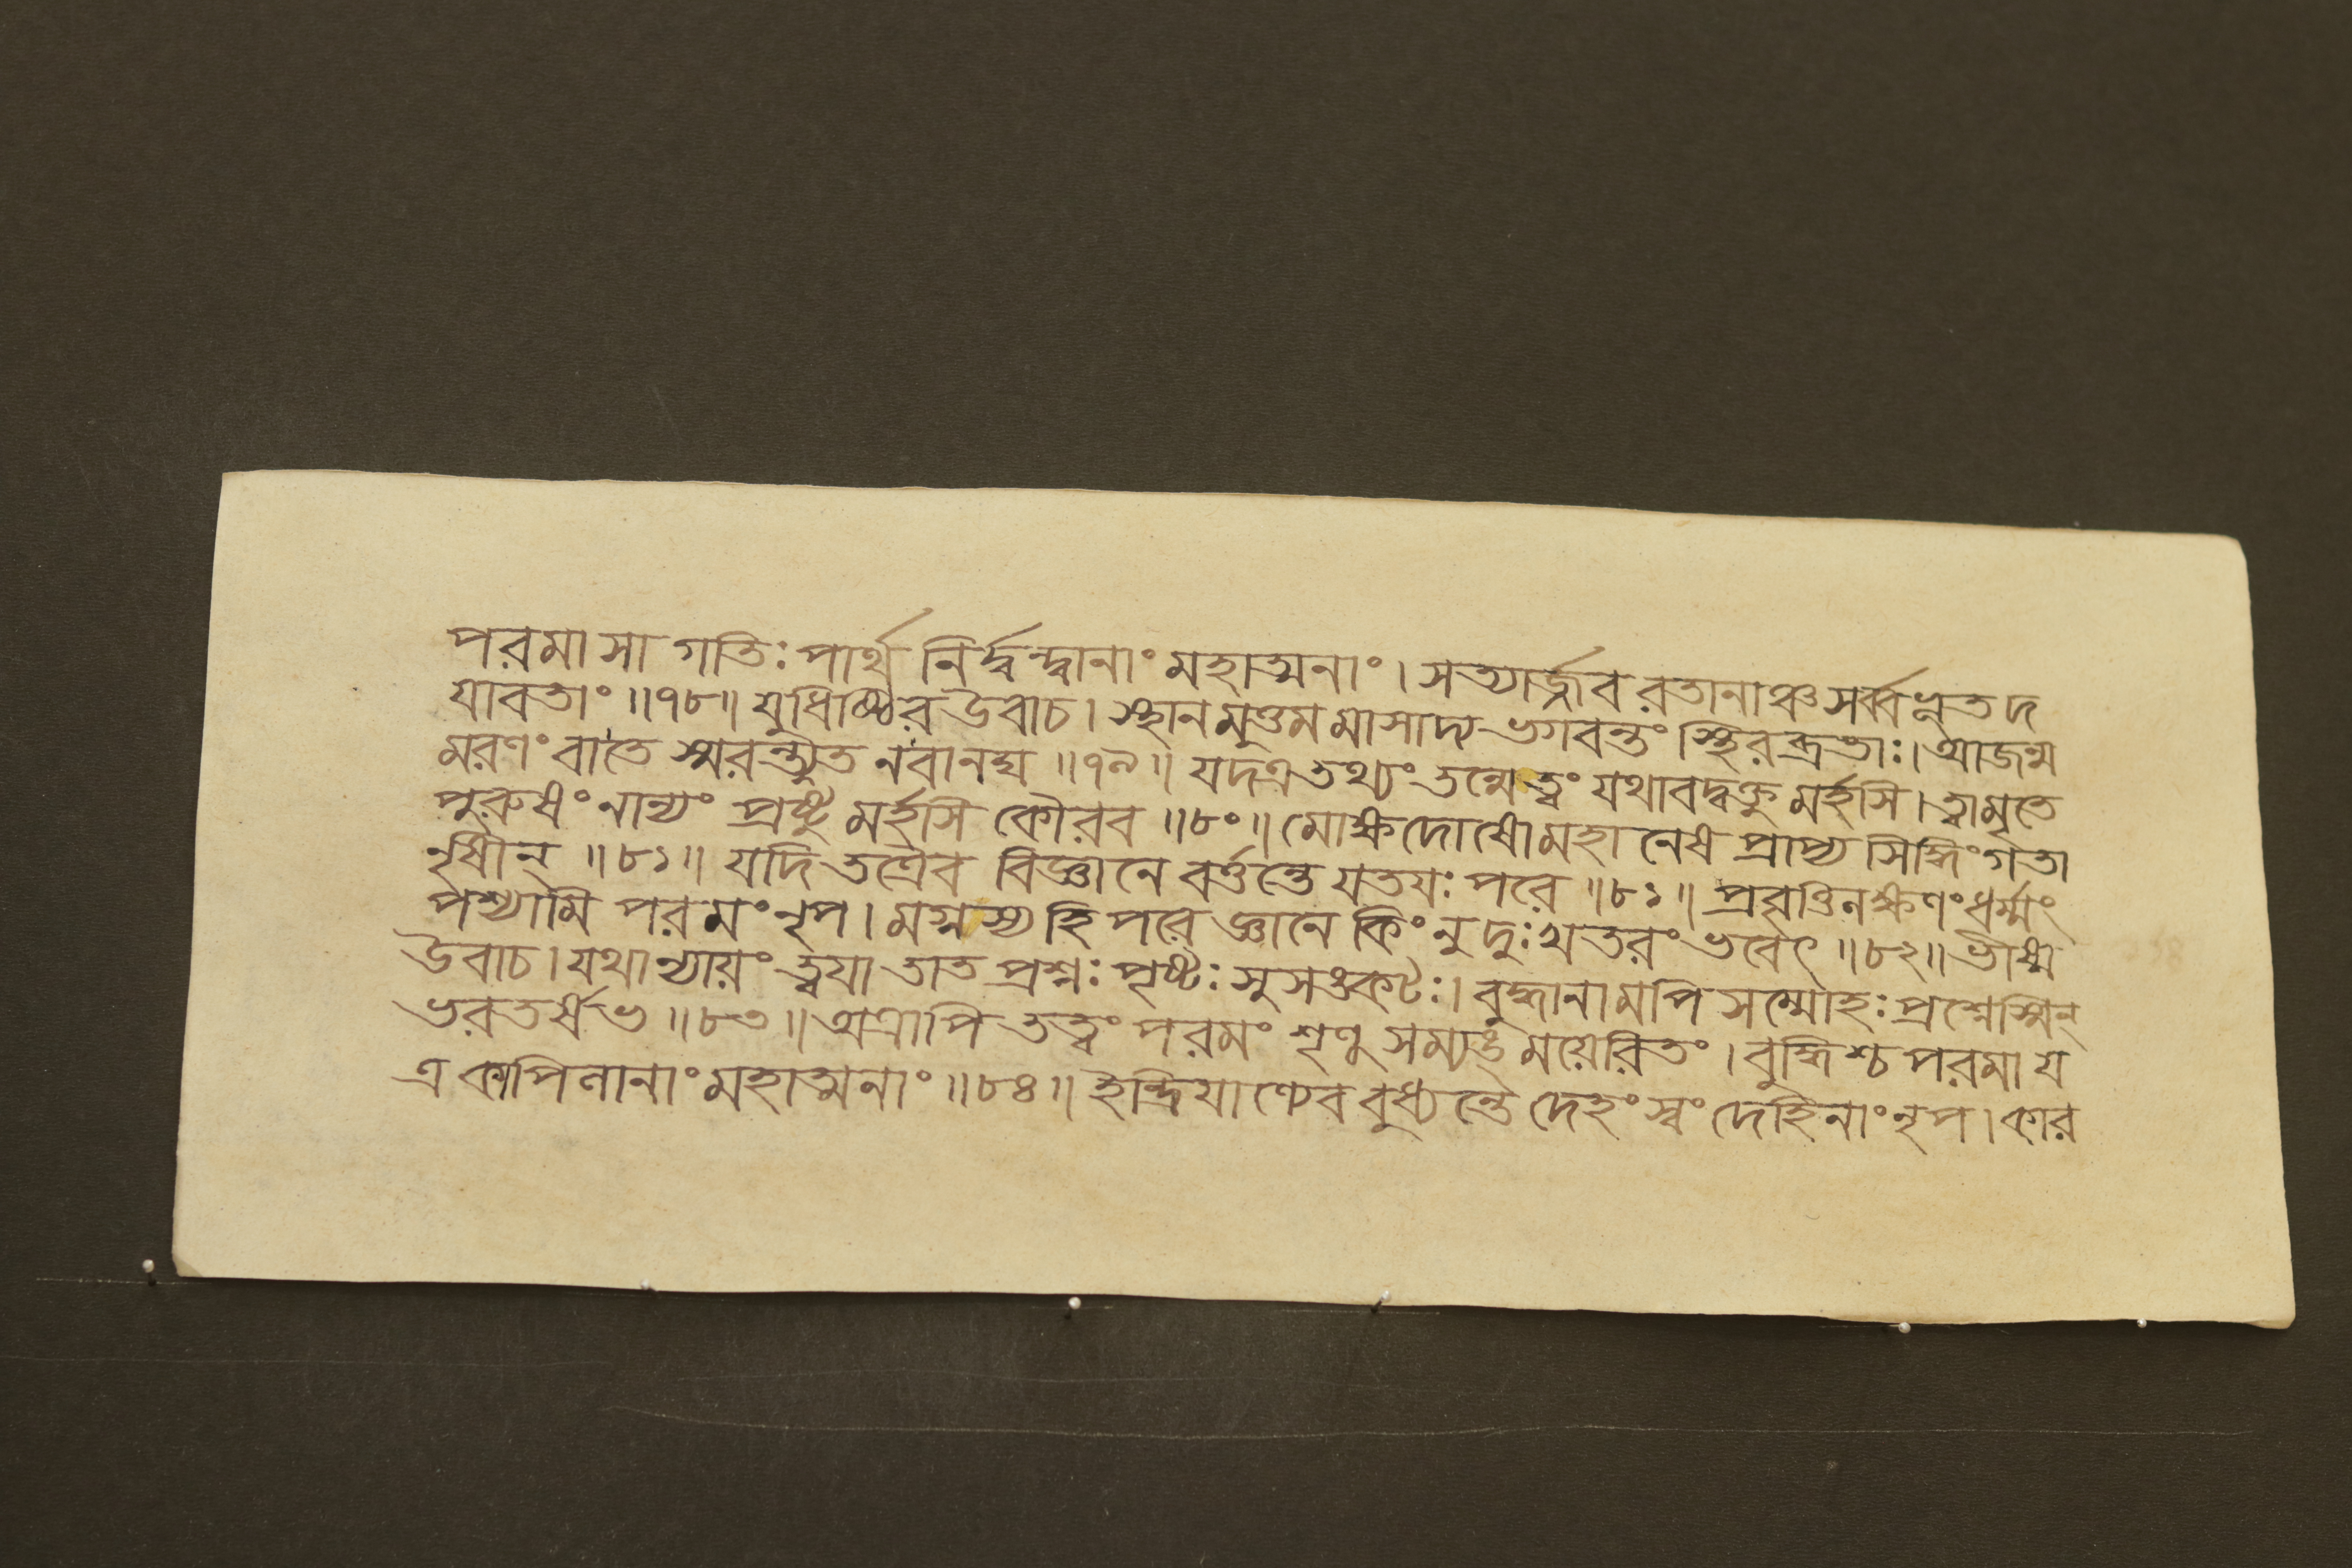 পরমা সা গতিঃ পার্থ নির্দ্বন্দ্বানাং মহাত্মনাং । সত্যার্জ্জবরতানাঞ্চ সর্ব্বভূতদ
যাবতাং ॥৭৮॥ যুধিষ্ঠির উবাচ । স্থানমুত্তমমাসাদ্য ভগবন্তং স্থিরব্রতাঃ । আজন্ম
মরণং বা তে স্মরন্ত্যুত নবানঘ ॥৭৯॥ যদত্র তথ্যং তন্মে ত্বং যথাবদ্বক্তুমর্হসি । ত্বামৃতে
পুরুষং নান্যং প্রষ্টুমর্হসি কৌরব ॥৮০॥ মোক্ষদোষো মহানেষ প্রাপ্য সিদ্ধিং গতা
নৃষীন্ ॥৮১॥ যদি তত্রৈব বিজ্ঞানে বর্ত্তন্তে যতযঃ পরে ॥৮১॥ প্রবৃত্তিলক্ষণং ধর্ম্মং
পশ্যামি পরমং নৃপ । মগ্নস্য হি পরে জ্ঞানে কিং নু দুঃখতরং ভবেৎ ॥৮২॥ ভীষ্ম
উবাচ । যথান্যায়ং ত্বযা তাত প্রশ্নঃ পৃষ্টঃ সুসঙ্কটঃ । বুদ্ধানামপি সম্মোহঃ প্রশ্নেস্মিন্
ভরতর্ষভ ॥৮৩॥ অত্রাপি তত্ত্বং পরমং শৃণু সম্যঙ্ময়েরিতং । বুদ্ধিশ্চ পরমা য
ত্র কাপিলানাং মহাত্মনাং ॥৮৪॥ ইন্দ্রিযাণ্যেব বুধ্যন্তে দেহং স্বং দেহিনাং নৃপ । কার